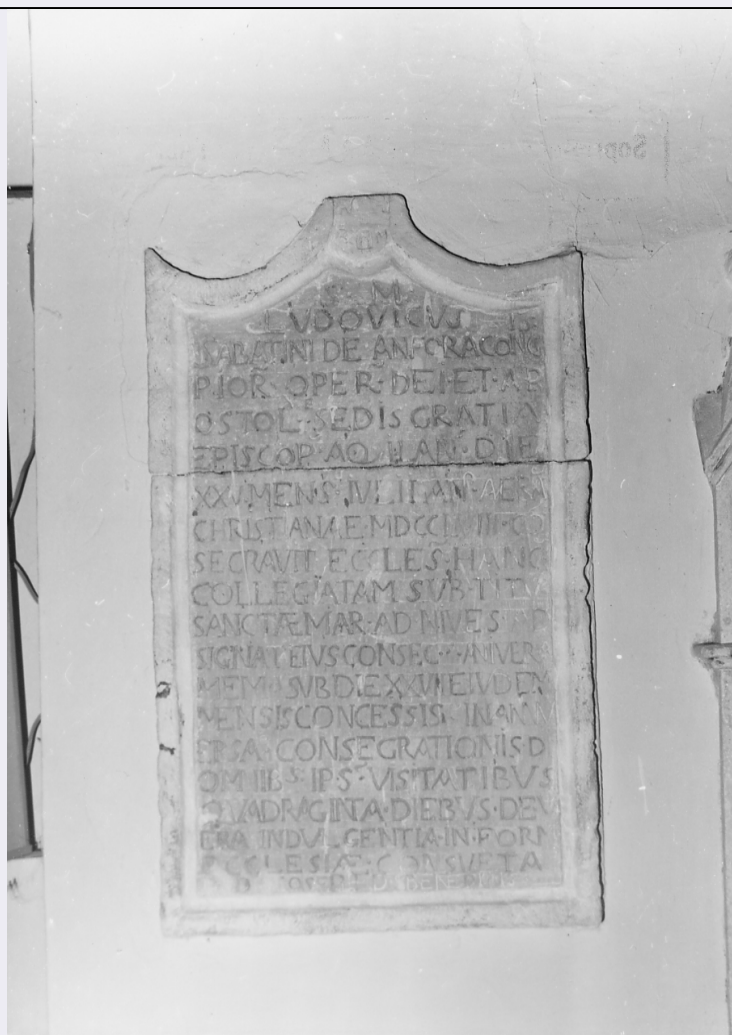 M
LUDOVICUS
SABATINI DE ANFORA CONG
PIOR · OPER · DEI · ET · AP
OSTOL · SEDIS GRATIA
EPISCOP · AQUILAN · DIE
XXV · MENS · IULII · AN · AERA
CHRISTIANAE
SECRAVIT ECCLES · HANC
COLLEGIATAM SUB · TITU
SANCTÆ MAR · AD NIVES
SIGNAT EIVS CONSEC · ANIVER
MEM · SUB DIE EIUDEM
MENSIS CONCESSIS IN ANN
ERSA · CONSEGRATIONIS · D
OMIIBS · IPS · VISTATIBVS
QVADRAGINTA · DIEBVS · DEV
ERA INDVLGENTIA · IN · FORM
ECCLESIÆ · CONSUETA